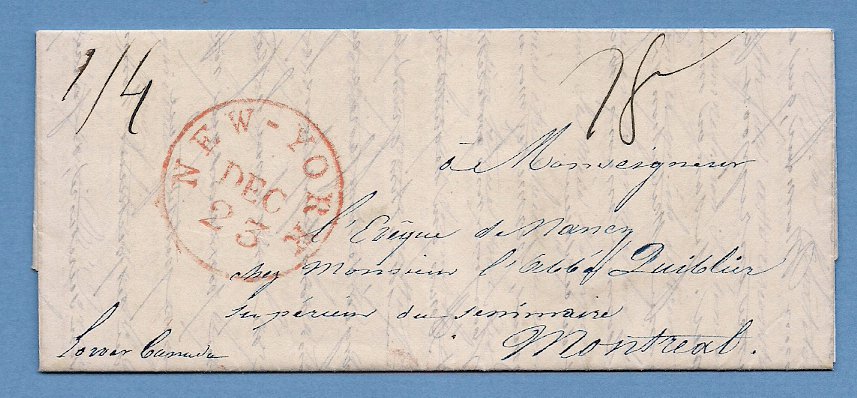 1/4
18
NEW-YORK
DEC
23
à Monseigneur
l'Evêque de Nancy
chez Monsieur l'abbé Quiblier
Supérieur du seminaire
Montreal.
Lower Canada